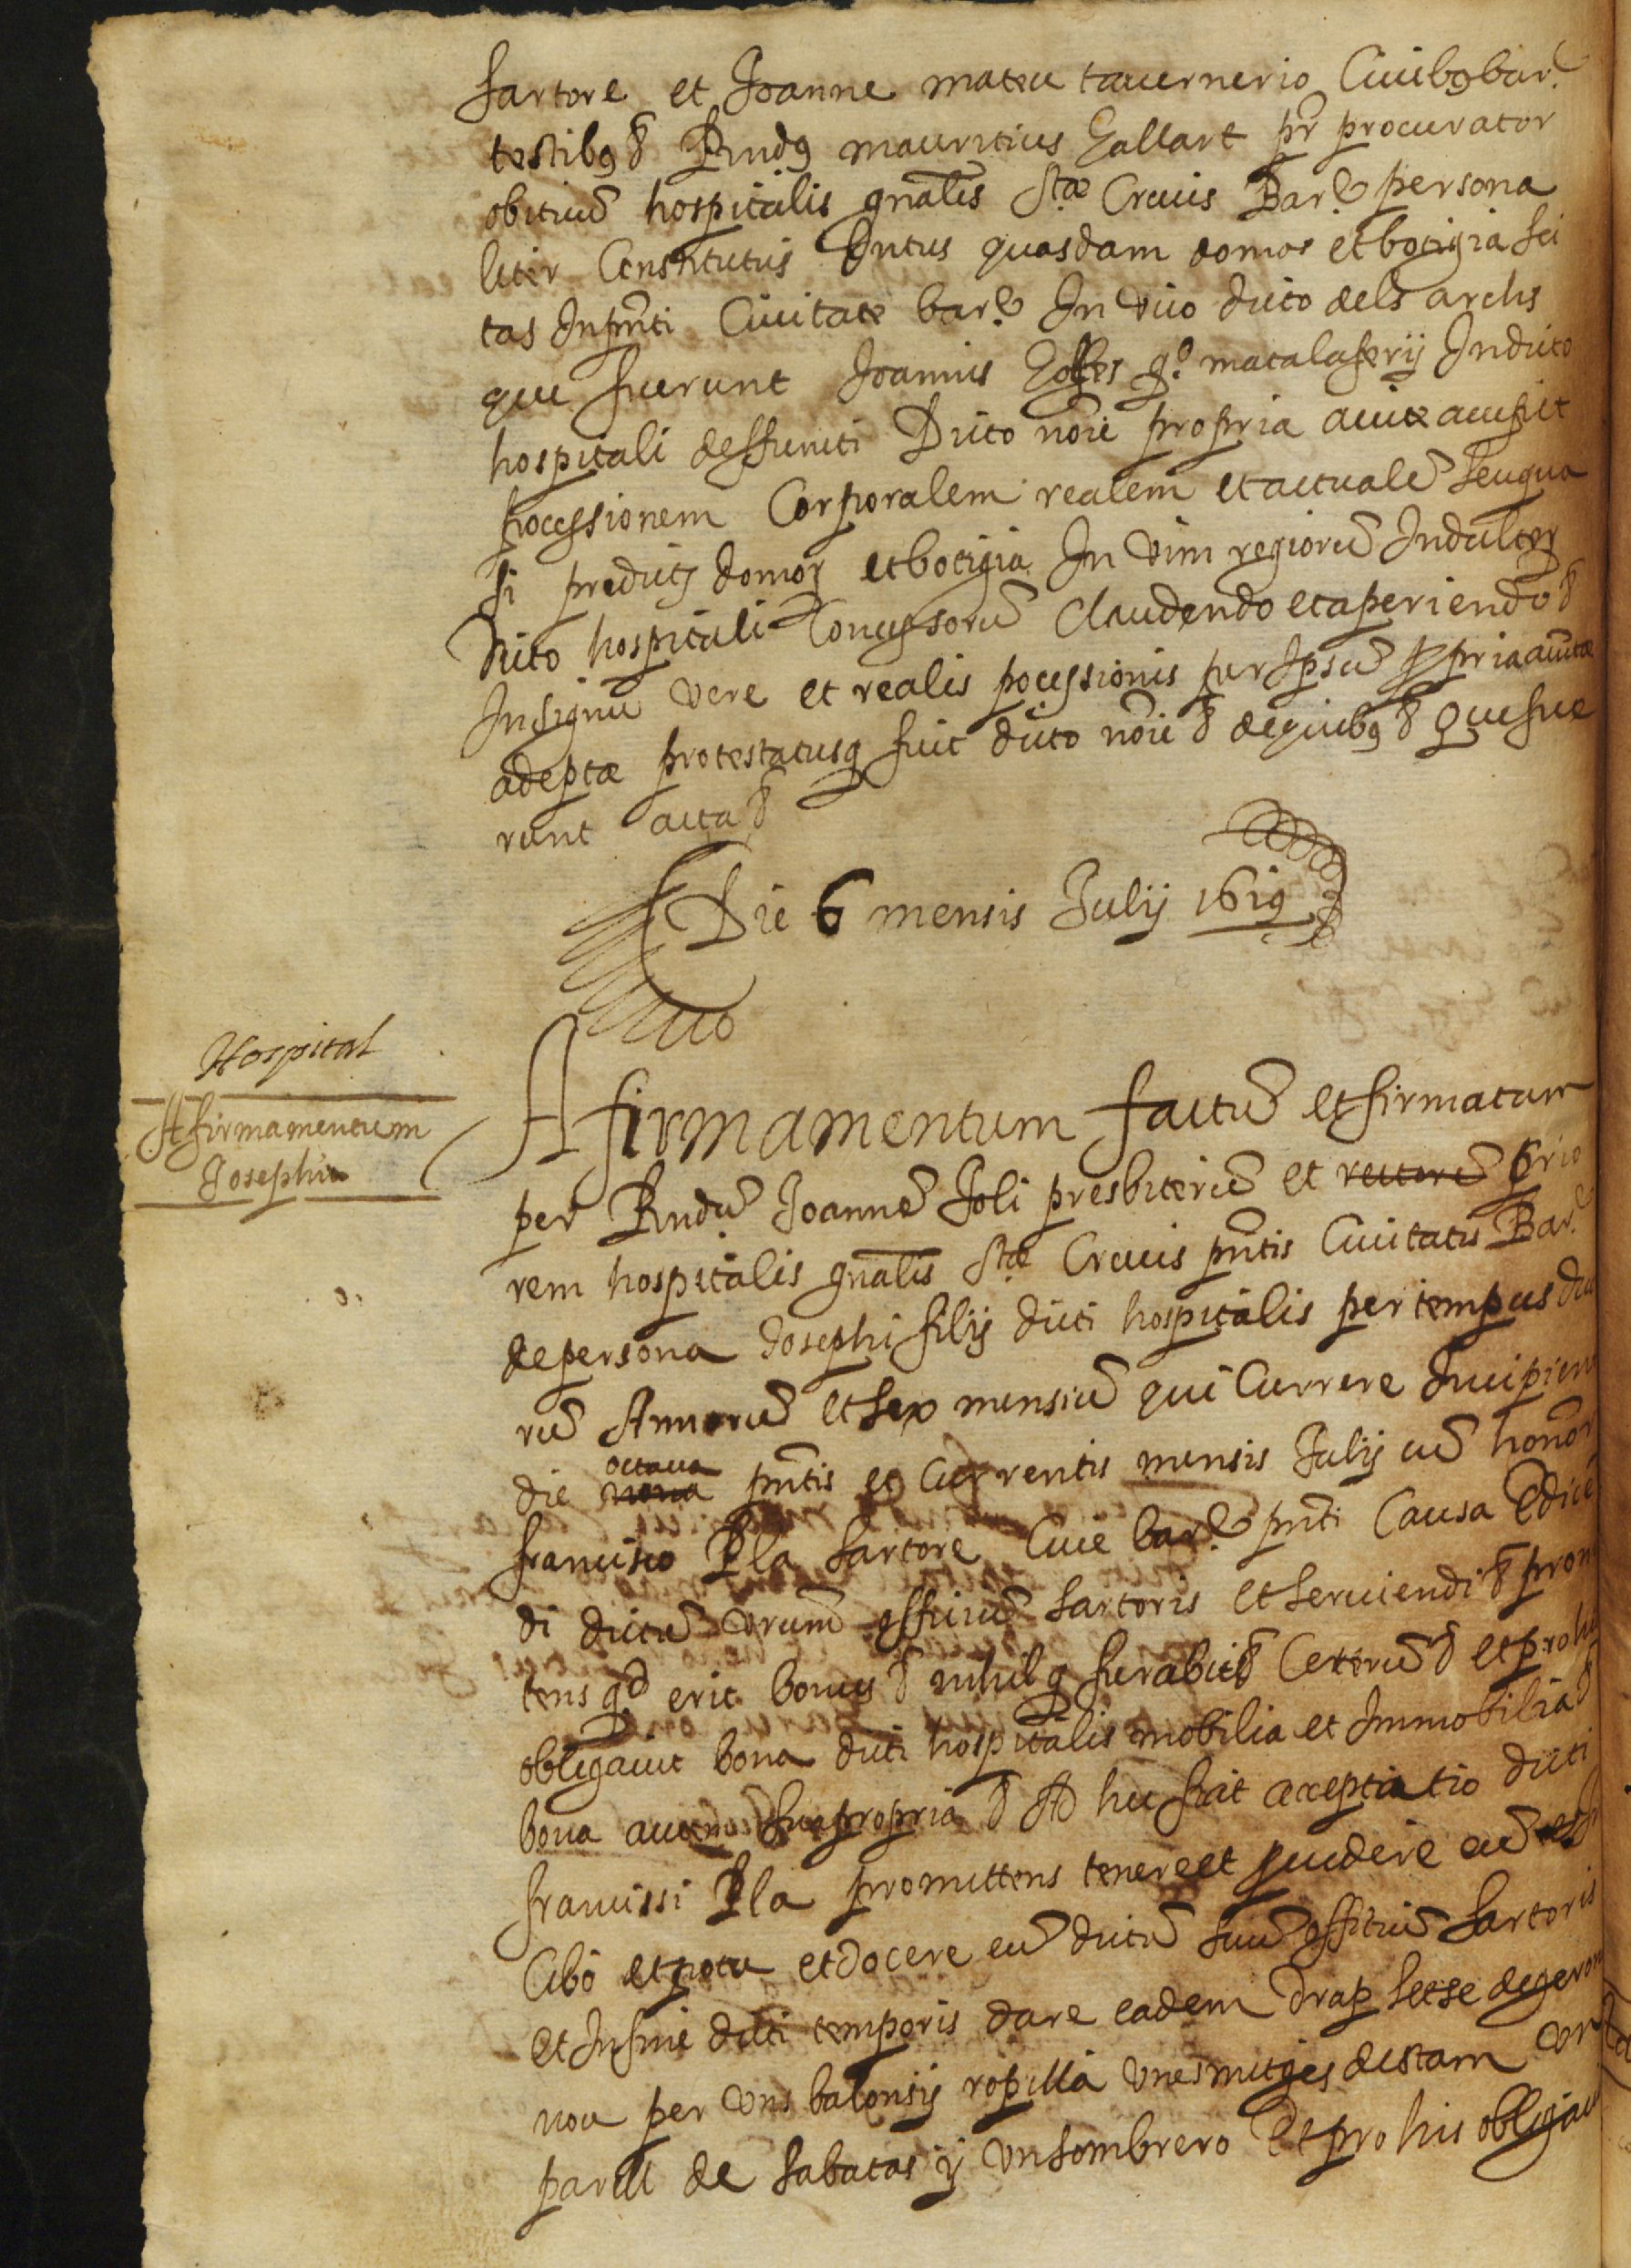 sartore et Joanne mateu tauernerio Ciuibꝯ bar.ᵉ
testibꝯ & Rndꝯ mauritius Gallart pr̃ procurator
obituũ hospitalis gñalis Stæ Crucis Bar.ᵉ persona
liter Constitutus Intus quasdam domos et botigia sci
tas In pñti Ciuitate bar.ᵉ In vico dicto dels archs
que fuerunt Joannis q.º matalaferij In dicto
hospitali deffuncti Dicto nõie propria aucte accepit
pocessionem Corporalem realem et actualẽ seu qua
si predictꝝ domoꝝ et botigia In vim regiorũ Indultoꝝ
dicto hospitali Concessorũ Claudendo et aperiendo &
In signũ vere et realis pocessionis per Ipsũ ꝓpria aucte
adeptæ protestatusq fuit dicto nõie & de quibꝯ & que fue
runt acta &
Die 6 mensis Julij 1619
Hospital
Afirmamentum
Josephi
Afirmamentum factũ et firmatum
per Rndũ Joannẽ Joli presbiterũ et rectorẽ prio
rem hospitalis gñalis Stæ Crucis pñtis Ciuitatis Bar.ᵉ
de persona Josephi filij dicti hospitalis per tempus duo
rũ Annorũ et sex mensiũ qui Currere Incipient
die nona octaua pñtis et Currentis mensis Julij cũ honor
francisco Pla sartore Ciue bar.ᵉ pñti Causa Edicẽ
di dictũ vrum officiũ sartoris et seruiendi & promi
tens qd erit bonus & nihilq furabit & Ceterũ & et pro his
obligauit bona dicti hospitalis mobilia et Immobilia &
bona autem sua propria & Ad hec fuit acceptatio dicti
francissi Pla promittens tenere et prouidere eũ
Cibo et potu et docere eũ dictũ suũ officiũ sartoris
et In fine dicti temporis dare eadem drap setse de geron
nou per uns balonsij ropilla unes mitges destam un
parell de sabatas ij un sombrero Et pro his obligauit